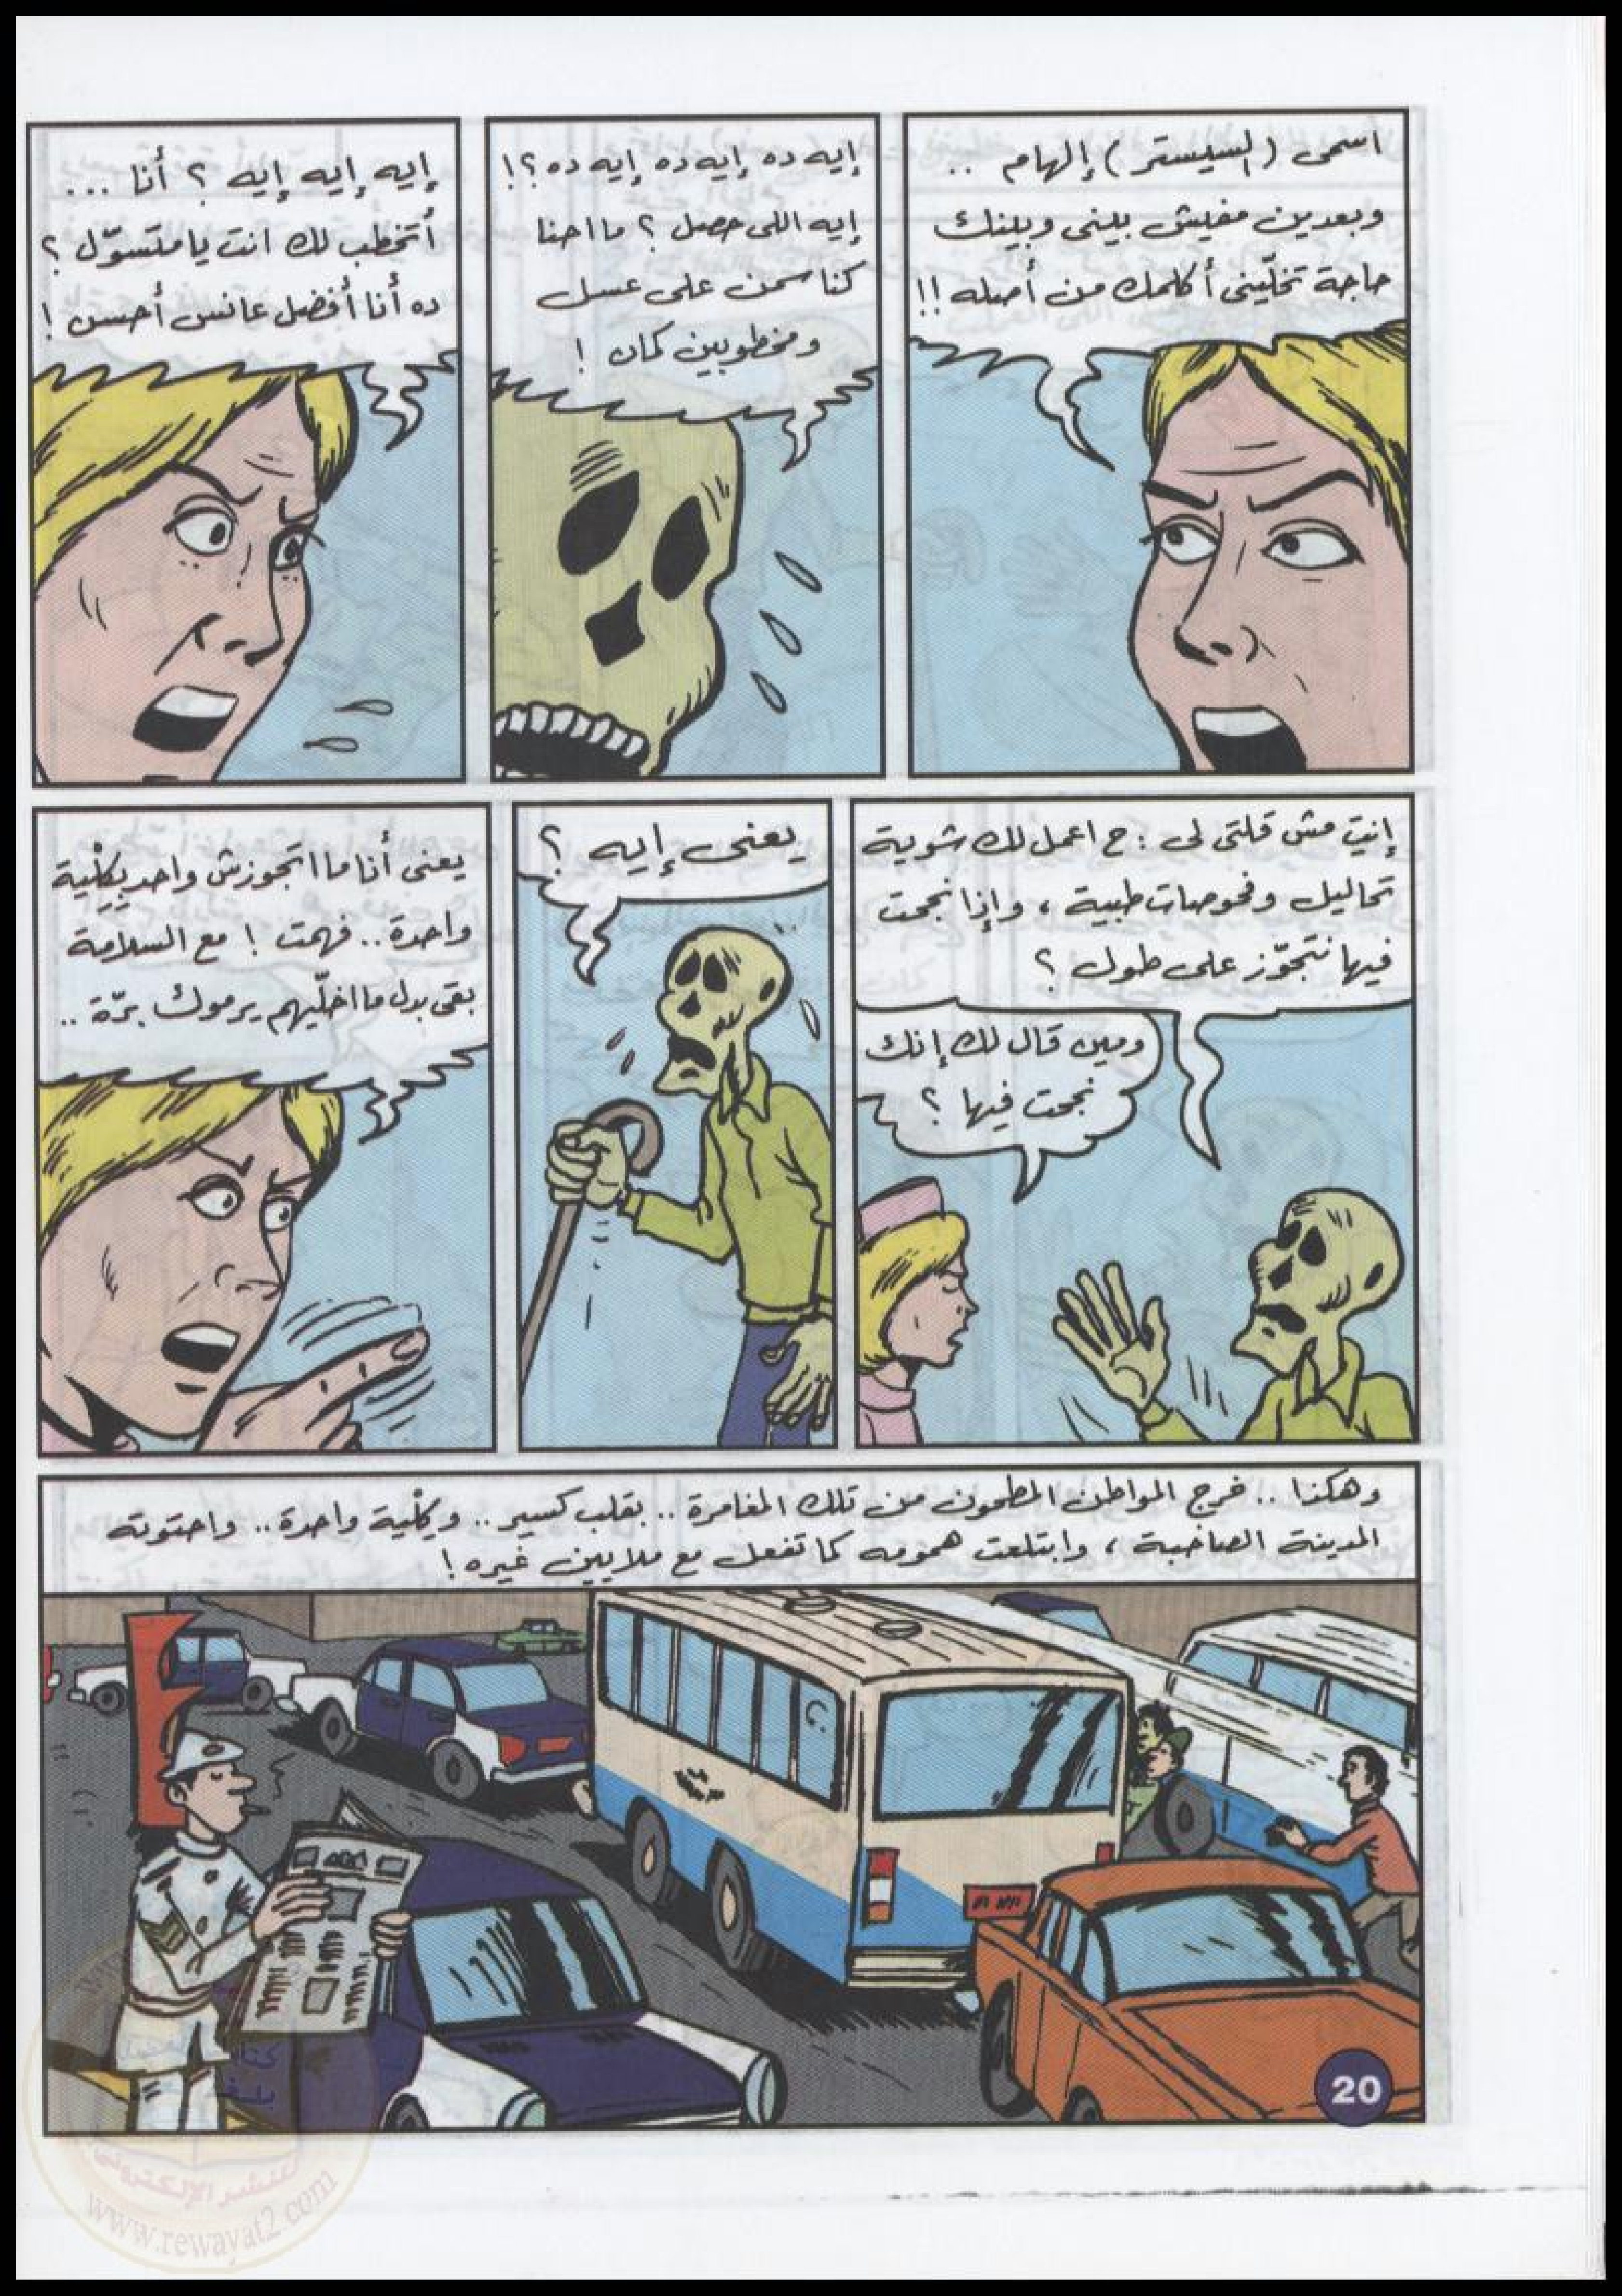 اسمى (السيستر) إلهام ..
وبعدين مفيش بينى وبينك
حاجة تخلّينى أكلمك من أصله !!
إيه ده إيه ده إيه ده ؟!
إيه اللى حصل ؟ ما احنا
كنا سمن على عسل
ومخطوبين كمان !
إيه إيه إيه ؟ أنا ...
أتخطب لك انت يا متسوّل ؟
ده أنا أفضل عانس أحسن !
إنتِ مش قلتى لى : ح اعمل لك شوية
تحاليل وفحوصات طبية ، وإذا نجحت
فيها نتجوّز على طول ؟
ومين قال لك إنك
نجحت فيها ؟
يعنى إيه ؟
يعنى أنا ما اتجوزش واحد بِكِلْية
واحدة .. فهمت ! مع السلامة
بقى بدل ما اخلّيهم يرموك برّة ..
وهكذا .. خرج المواطن المطحون من تلك المغامرة .. بقلب كسير .. وبكلْية واحدة .. واحتوته
المدينة الصاخبة ، وابتلعت همومه كما تفعل مع ملايين غيره !
20
للنشر الإلكترونى
www.rewayat2.com